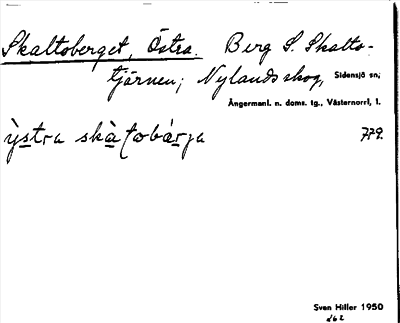 Skaltoberget, Östra. Berg S. Skalto-
tjärnen; Nylandsskog, Sidensjö sn;
Ångermanl. n. doms. tg., Västernorrl, l.
ỳstra skàʃobárja 779.
Sven Hiller 1950
d62